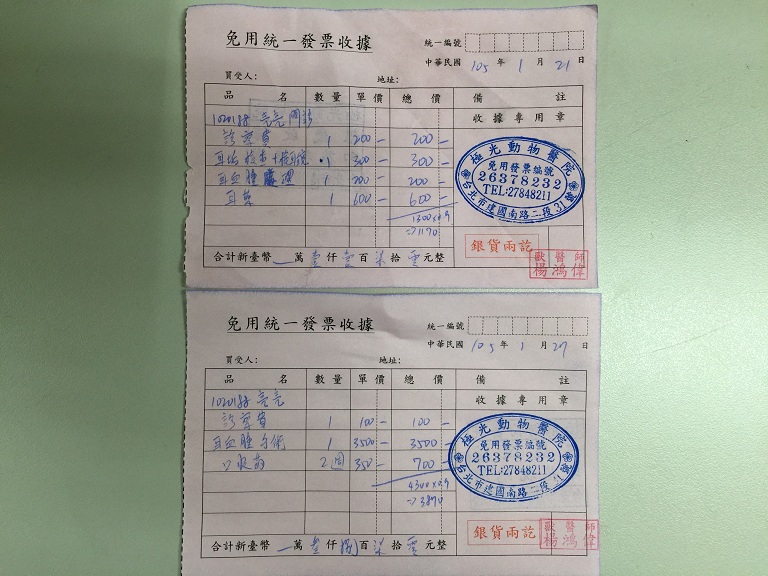 免用統一發票收據
統一編號
中華民國 105 年 1 月 21 日
買受人: 地址:
品 名 數量 單價 總 價 備 註
1020188 亮亮 收據專用章
診療費 1 200- 200-
1 300- 300-
耳血腫處理 1 200- 200-
耳藥 1 600- 600-
1300x0.9
⇒1170
極光動物醫院
免用發票編號
26378232
TEL:27848211
台北市建國南路二段31號
銀貨兩訖
獸醫師
楊鴻偉
合計新臺幣 一 萬 壹 仟 壹 百 柒 拾 零 元整
免用統一發票收據
統一編號
中華民國 105 年 1 月 27 日
買受人: 地址:
品 名 數量 單價 總 價 備 註
1020188 亮亮 收據專用章
診療費 1 100- 100-
耳血腫手術 1 3500- 3500-
口服藥 2週 350- 700-
4300x0.9
⇒3870
極光動物醫院
免用發票編號
26378232
TEL:27848211
台北市建國南路二段31號
銀貨兩訖
獸醫師
楊鴻偉
合計新臺幣 一 萬 叁 仟 捌 百 柒 拾 零 元整